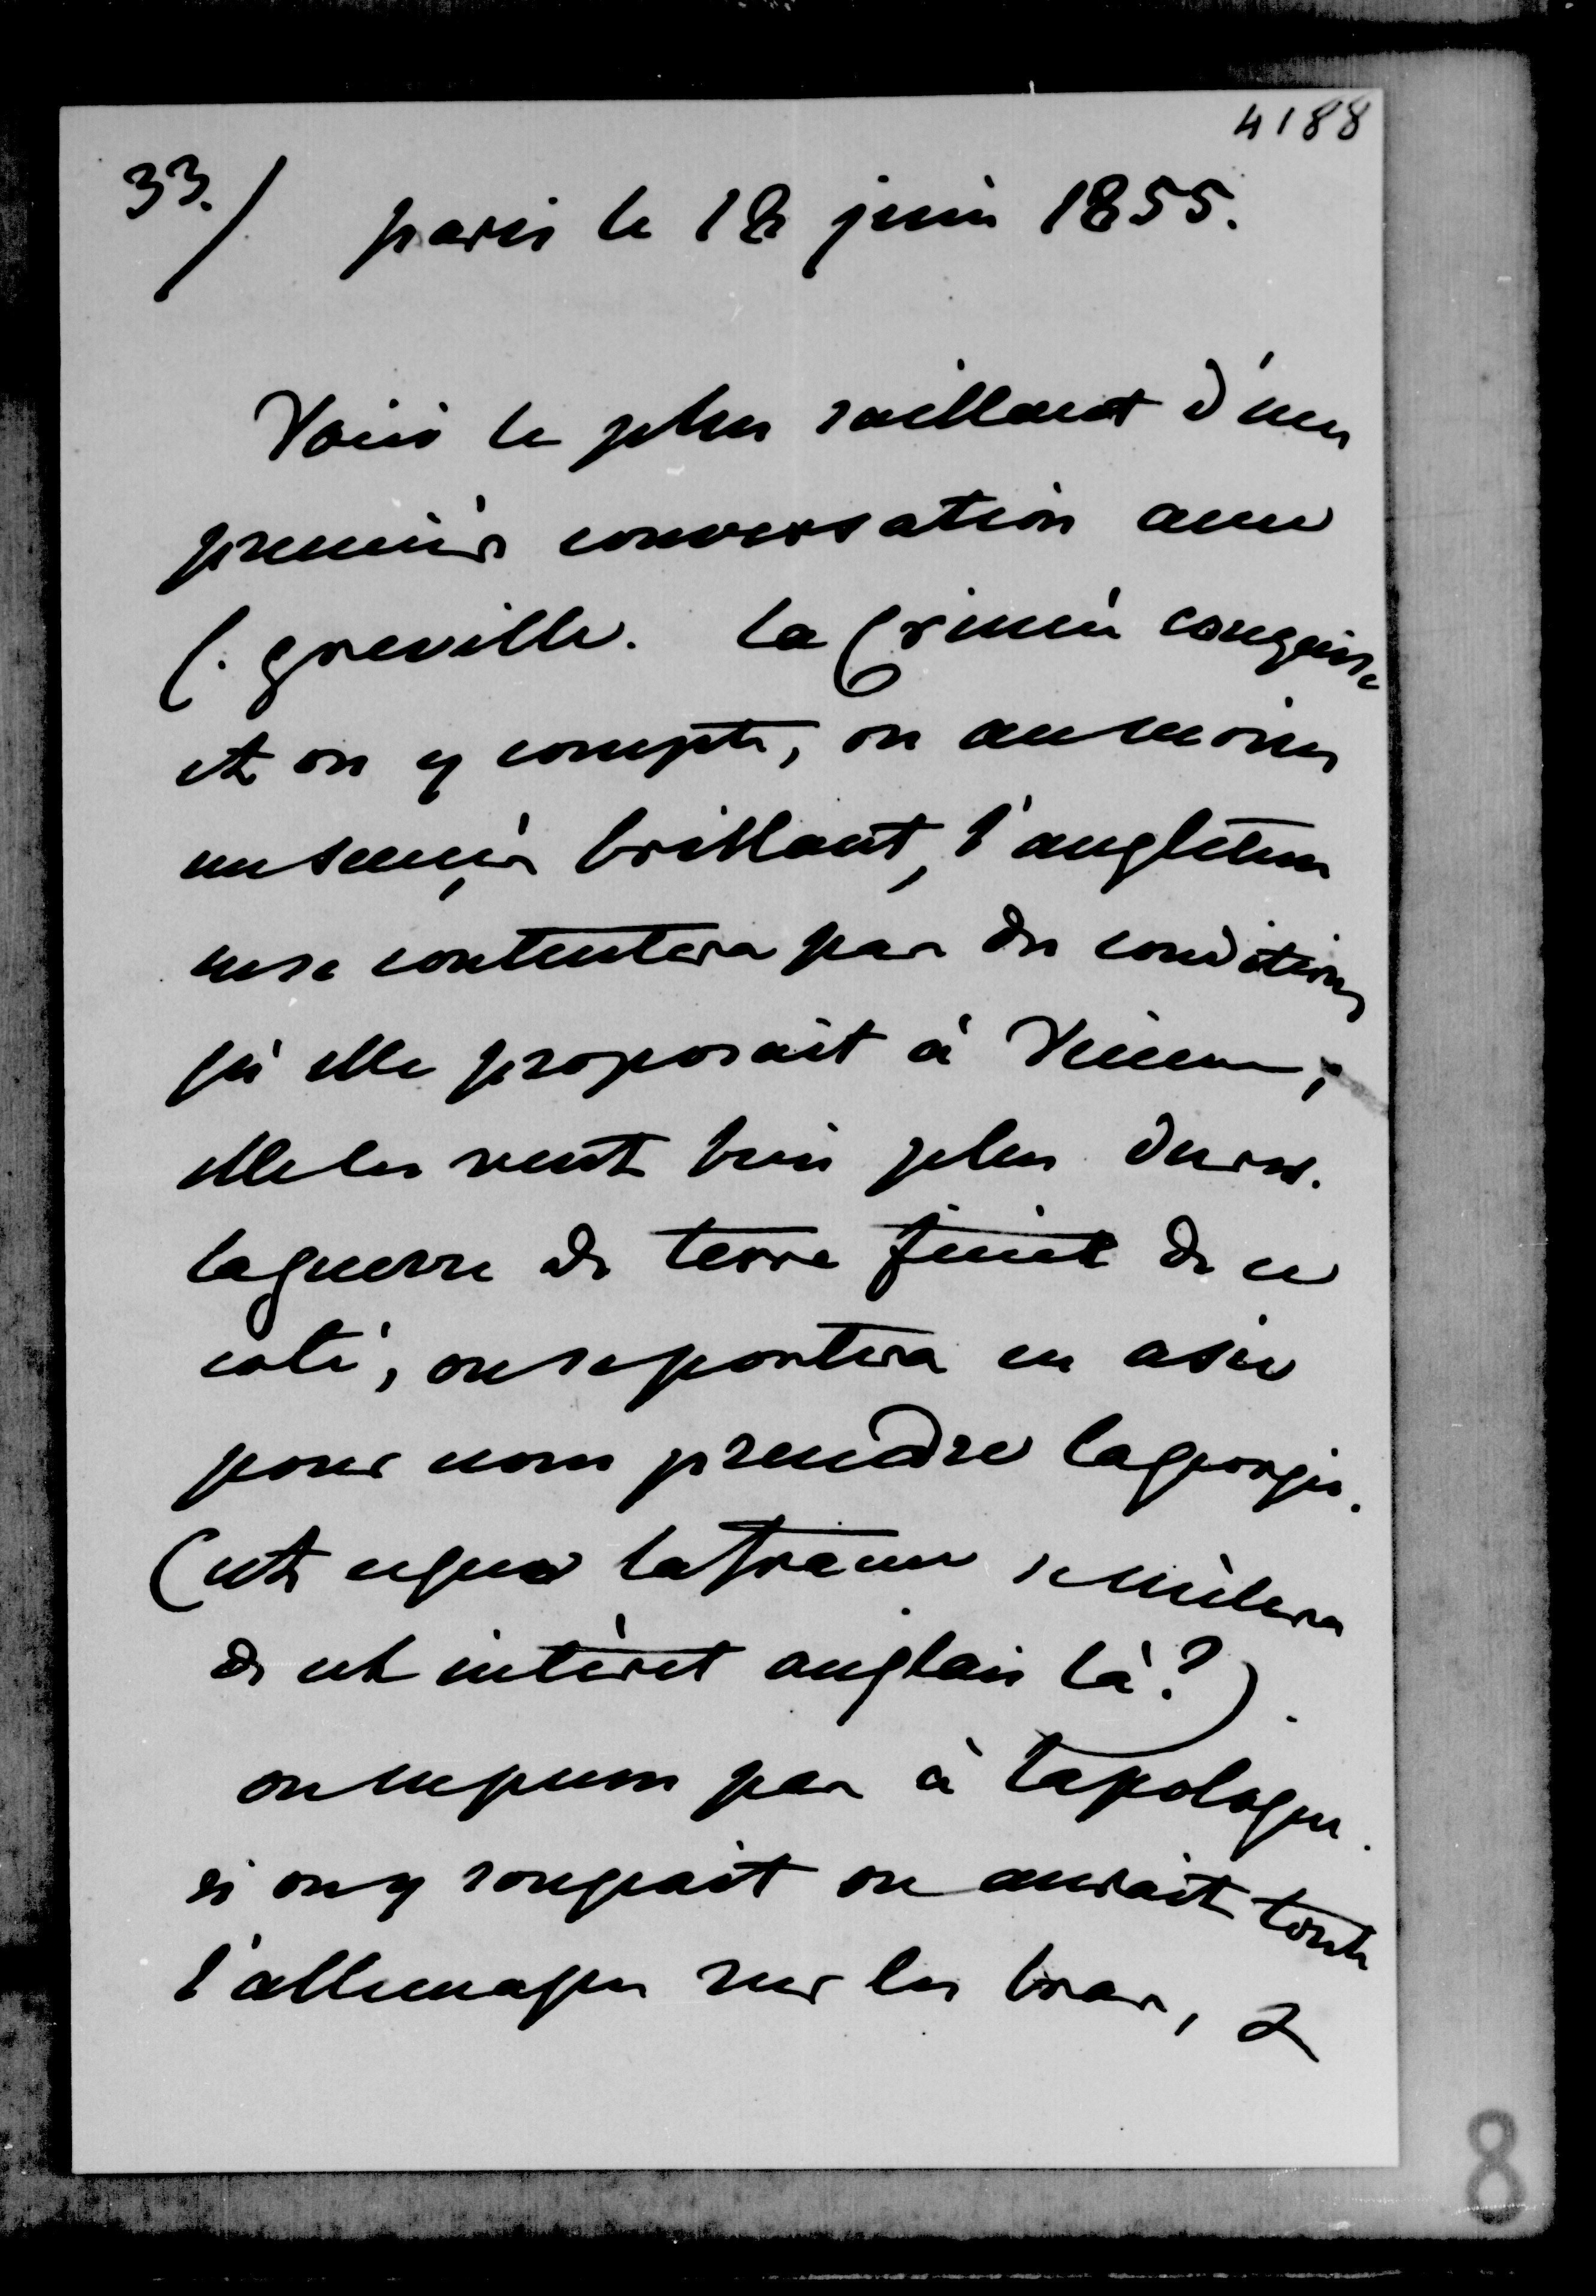 4188
33./ paris le 18 juin 1855.
Voici le plus saillant d'une
première conversation avec
C. greville. la Crimée conquise
et on y compte, ou au moins
un succès brillant, l'angleterre
ne se contentera pas des conditions
qu'elle proposait à Vienne,
elle les veut bien plus dures.
la guerre de terre finit de ce
coté, on se portera en asie
pour nous prendre la georgie.
(est ce que la france se mèlera
de cet intèret anglais là?).
on ne pense pas à la pologne.
si on y songeait on aurait toute
l'allemagne sur les bras, &
8